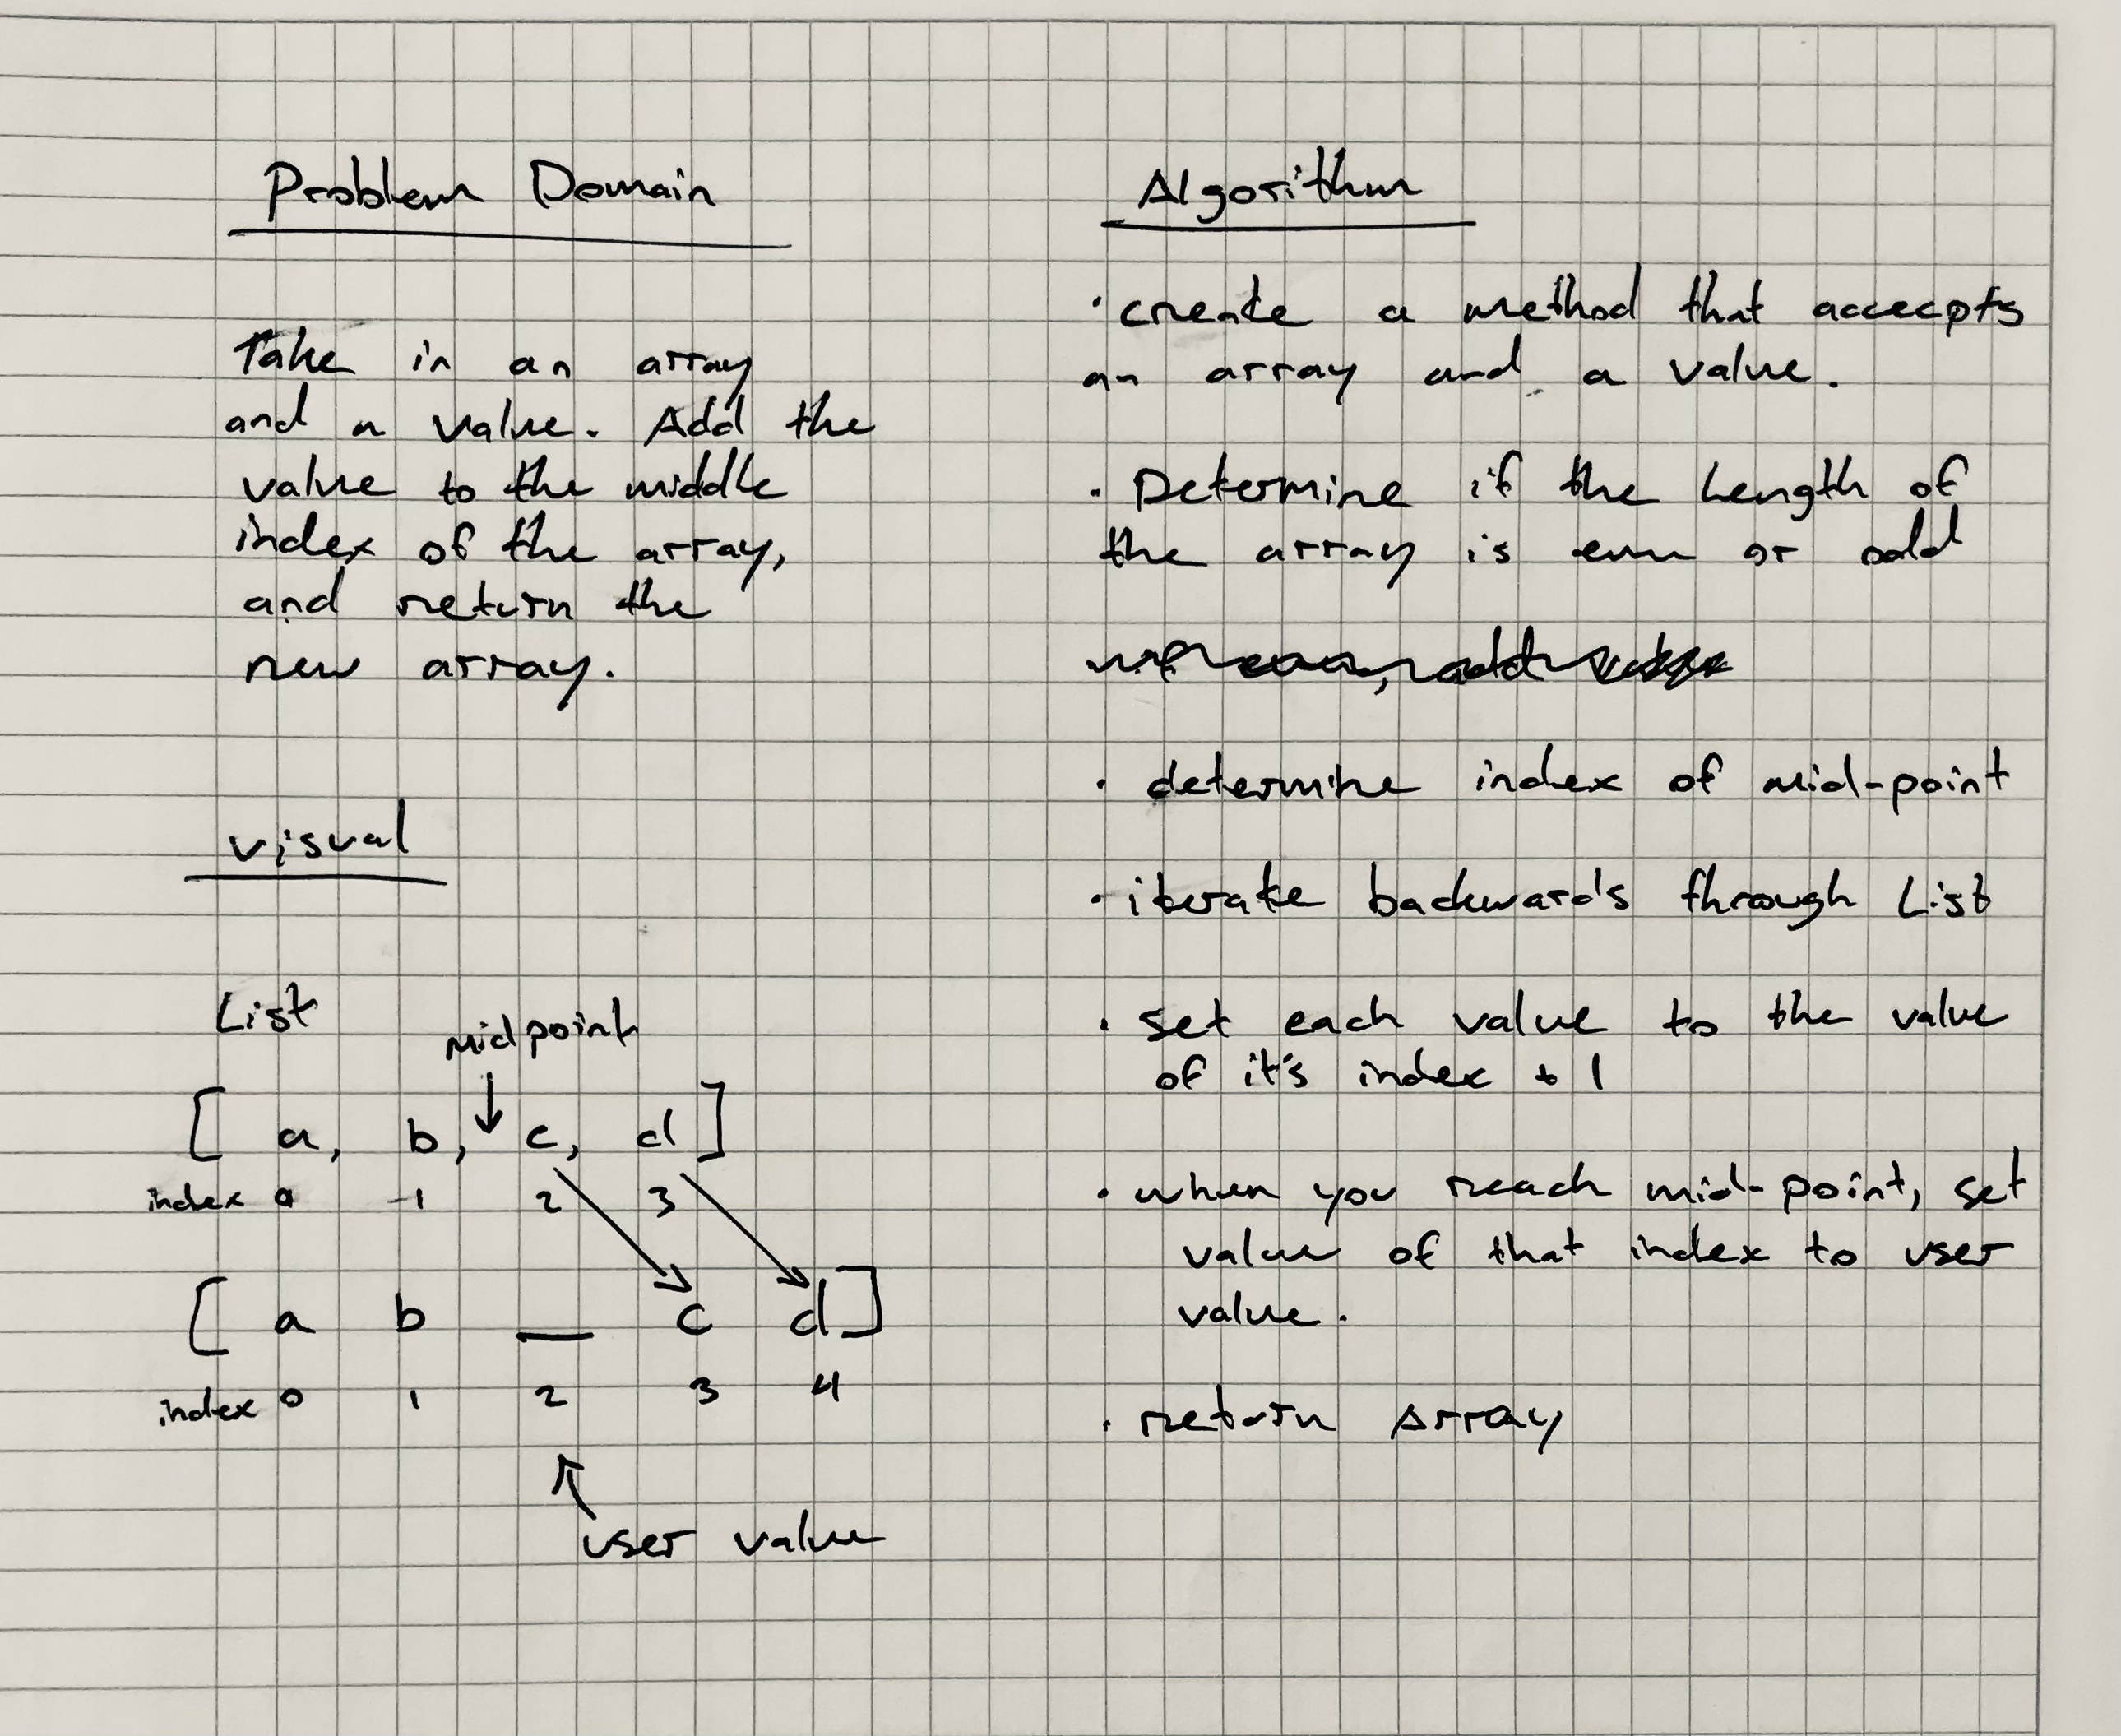 Problem Domain
Take in an array
and a value. Add the
value to the middle
index of the array,
and return the
new array.
visual
List
midpoint
[ a, b, c, d ]
index 0 1 2 3
[ a b __ c d ]
index 0 1 2 3 4
user value
Algorithm
· create a method that accecpts
an array and a value.
· Determine if the Length of
the array is even or odd
· determine index of mid-point
· iterate backwards through List
· set each value to the value
of it's index + 1
· when you reach mid-point, set
value of that index to user
value.
· return Array